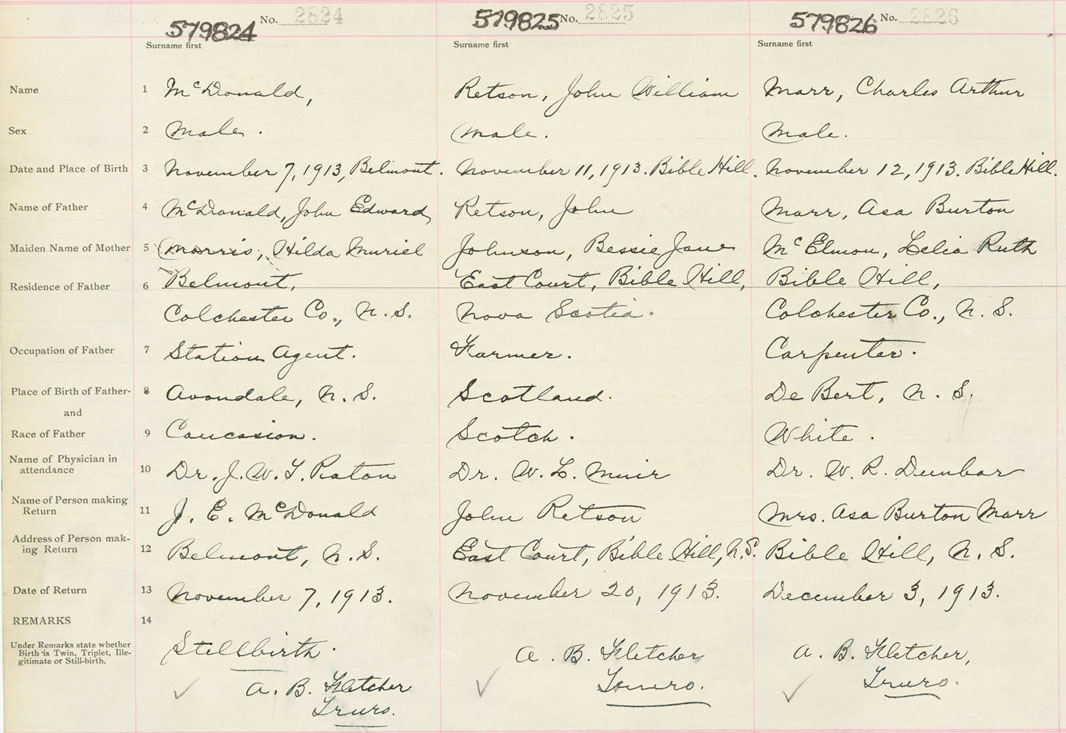 579824 No. 2824 579825 No. 2825 579826 No. 2826
Surname first Surname first Surname first
Name 1 McDonald, Retson, John William Marr, Charles Arthur
Sex 2 Male. Male. Male.
Date and Place of Birth 3 November 7, 1913, Belmont. November 11, 1913. Bible Hill. November 12, 1913. Bible Hill.
Name of Father 4 McDonald, John Edward, Retson, John Marr, Asa Burton
Maiden Name of Mother 5 Morris, Hilda Muriel Johnson, Bessie Jane McElmon, Lelia Ruth
Residence of Father 6 Belmont, East Court, Bible Hill, Bible Hill,
Colchester Co., N. S. Nova Scotia. Colchester Co., N. S.
Occupation of Father 7 Station Agent. Farmer. Carpenter.
Place of Birth of Father- 8 Avondale, N. S. Scotland. De Bert, N. S.
and
Race of Father 9 Caucasion. Scotch. White.
Name of Physician in
attendance 10 Dr. J. W. T. Dr. W. L. Muir Dr. W. R. Dunbar
Name of Person making
Return 11 J. E. McDonald John Retson Mrs. Asa Burton Marr
Address of Person mak-
ing Return 12 Belmont, N. S. East Court, Bible Hill, N. S. Bible Hill, N. S.
Date of Return 13 November 7, 1913. November 20, 1913. December 3, 1913.
REMARKS 14
Under Remarks state whether
Birth is Twin, Triplet, Ille-
gitimate or Still-birth.
Stillbirth.
A. B. Fletcher A. B. Fletcher A. B. Fletcher,
Truro. Truro. Truro.